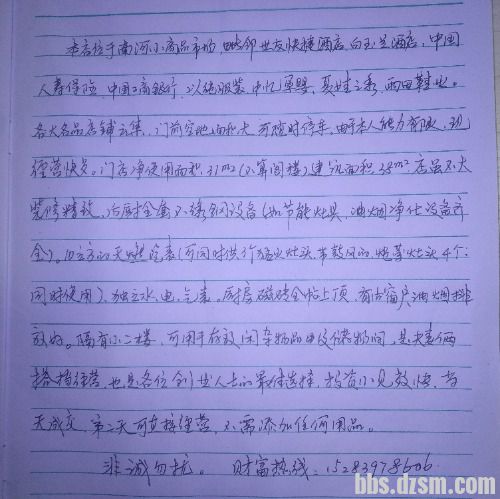 本店位于南河小商品市场，毗邻世友快捷酒店，白玉兰酒店，中国
人寿保险，中国工商银行，以纯服装，中忆孕婴，夏娃之秀，雨田鞋业。
各大名品店铺云集，门前空地面积大，可临时停车，由于本人能力有限，现
经营快点。门店净使用面积31m²（不算阁楼）建筑面积38m²，店虽不大
装修精致，后厨全套不锈钢设备（如节能灶具，油烟净化设备齐
全）。10立方的天燃气表（可同时供行猛火灶头带鼓风的，炖菜灶头4个：
同时使用），独立水、电、气表。厨房磁砖全帖上顶，有古窗户油烟排
放好。隔有小二楼，可用于存放闲杂物品及储物间，是夫妻俩
搭档经营，也是各位创业人士的最佳选择，投资小见效快，当
天成交，第二天可直接经营，不需添加任何用品。
非诚勿扰。 财富热线：15283978606
bbs.dzsm.com